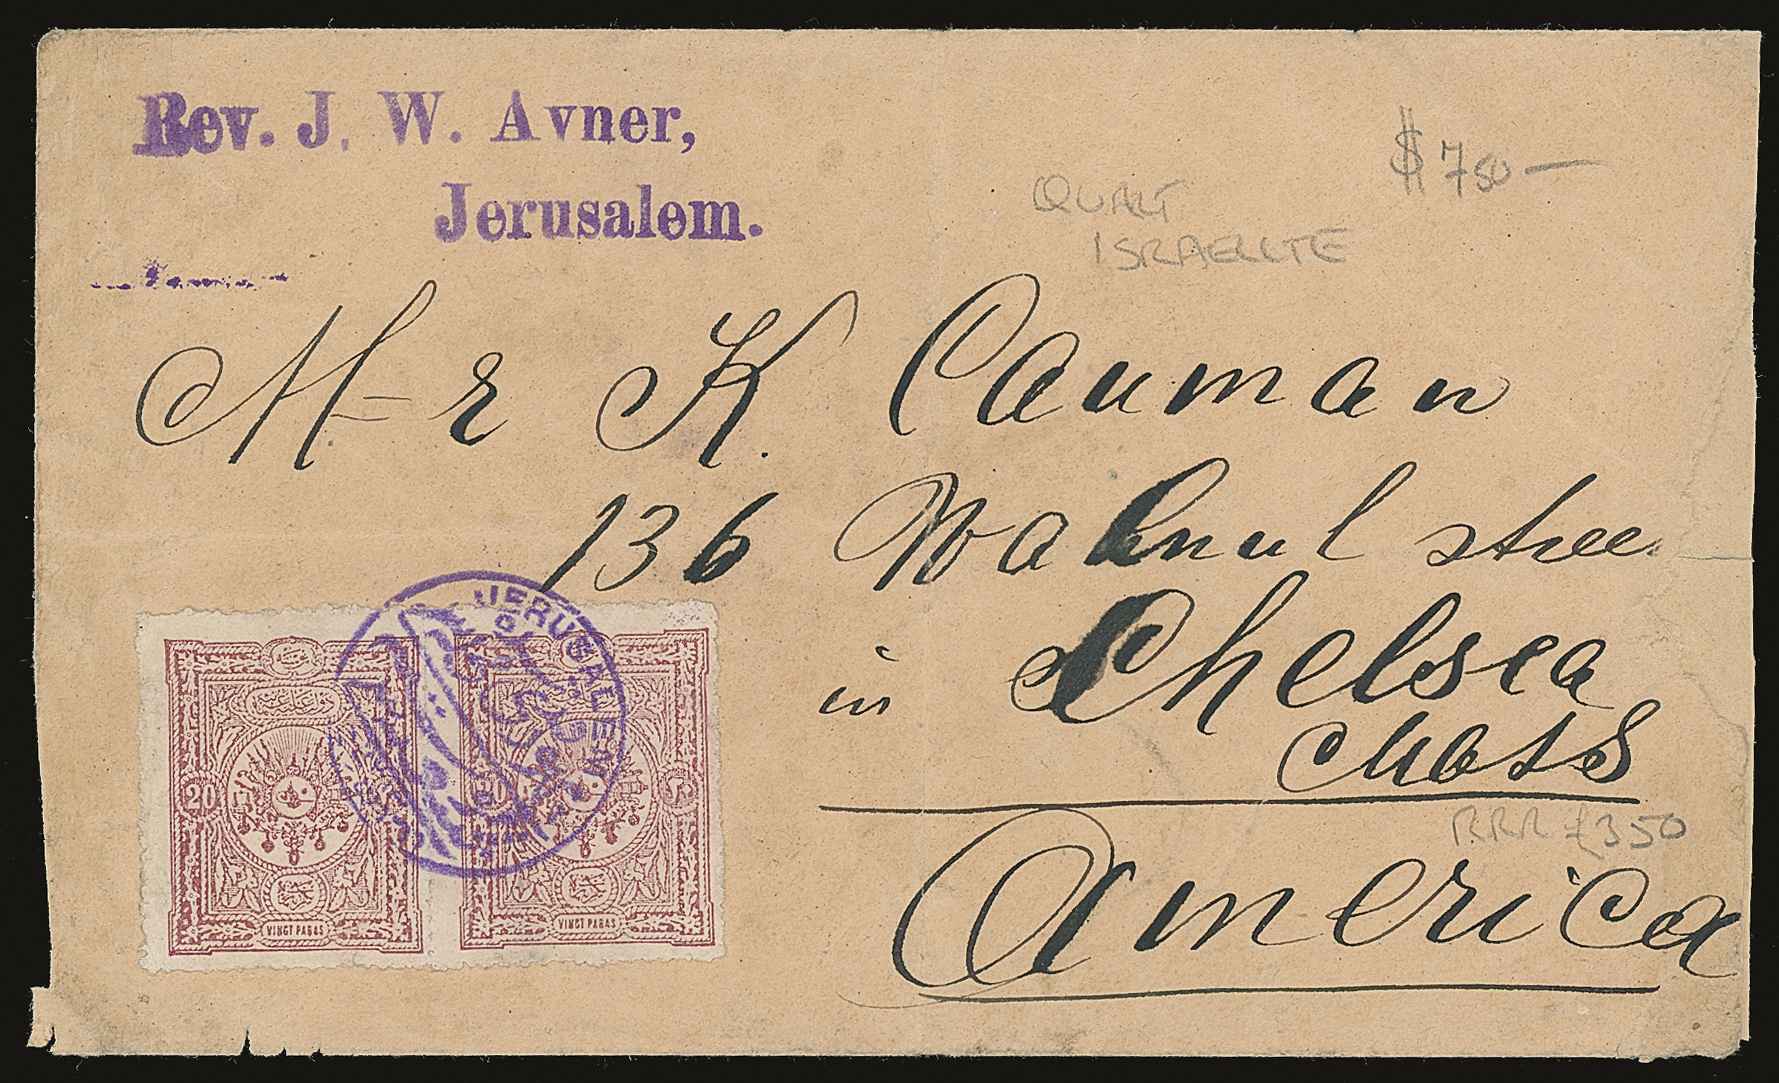 Rev. J. W. Avner,
Jerusalem.
$ 750 —
QUART
ISRAELITE
Mr K. Cauman
136 Walnut stree
in Chelsea
Mass
RRR £350
America
JERUSALEM
20
20
VINGT PARAS
VINGT PARAS